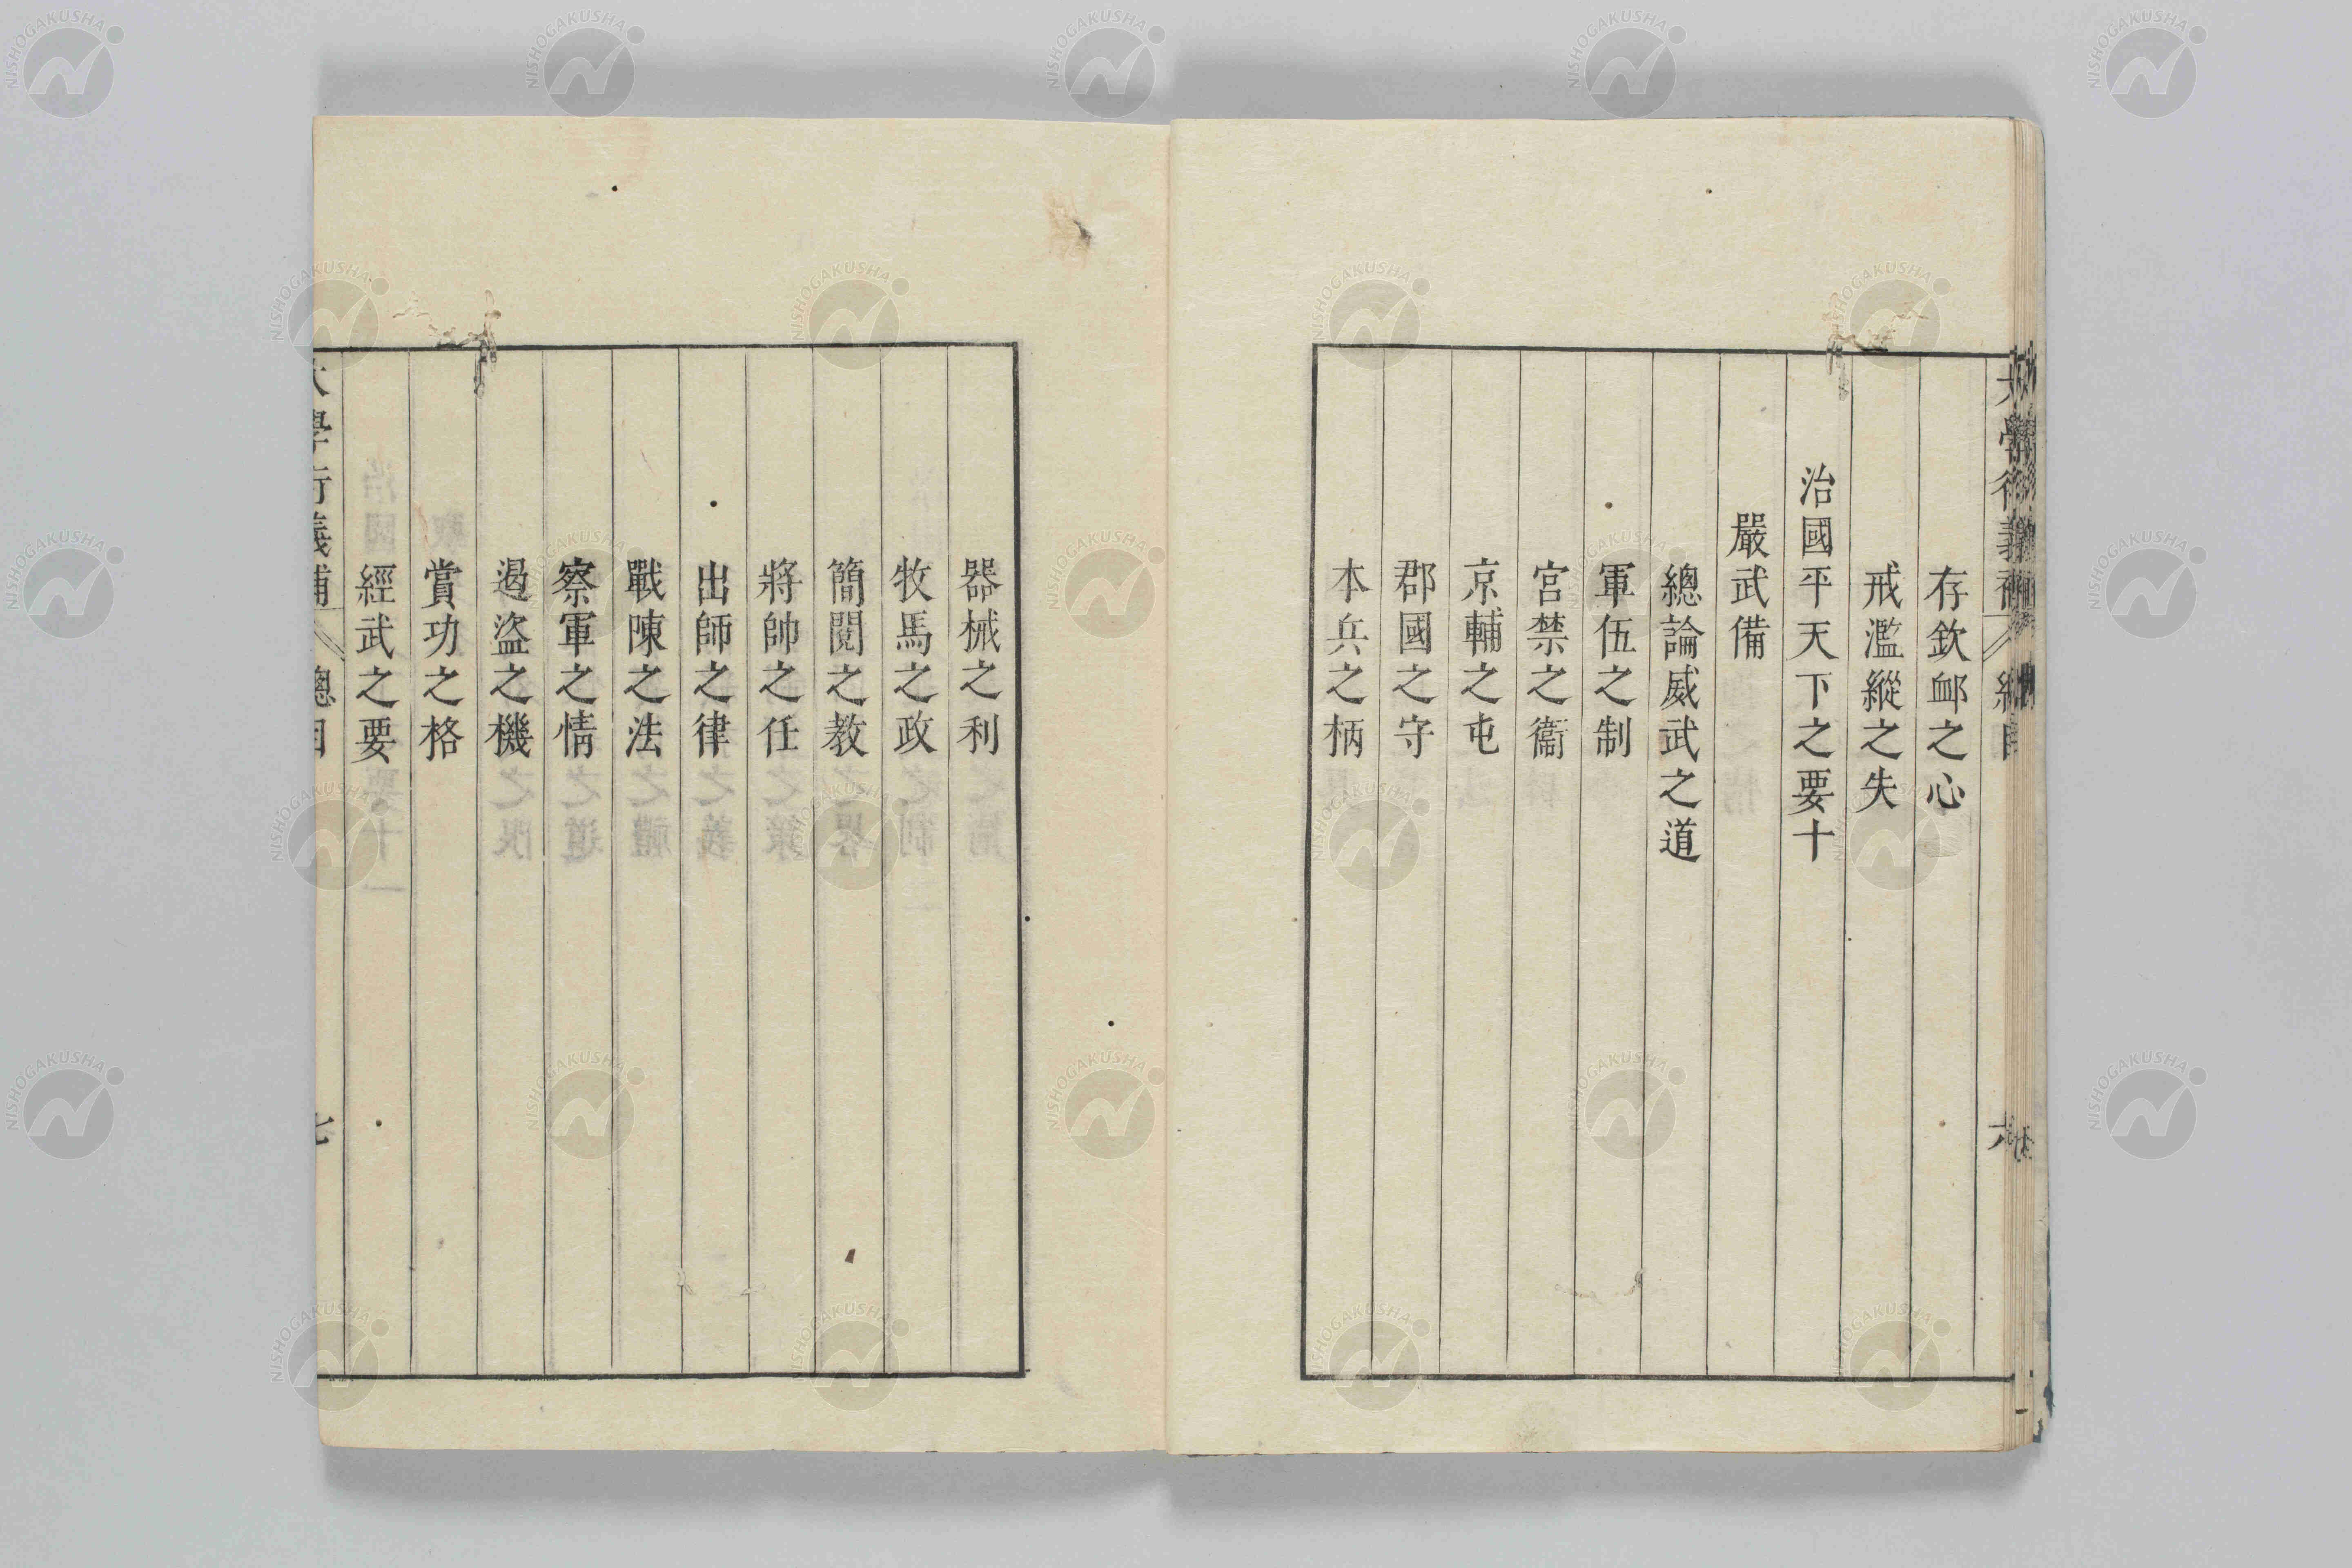 存欽衈之心
戒濫縱之失
治國平天下之要十
嚴武備
總論威武之道
軍伍之制
宮禁之衞
京輔之屯
郡國之守
本兵之柄
器械之利
牧馬之政
簡閱之教
將帥之任
出師之律
戰陳之法
察軍之情
遏盜之機
賞功之格
經武之要
大學衍義補 總目
七
NISHOGAKUSHA